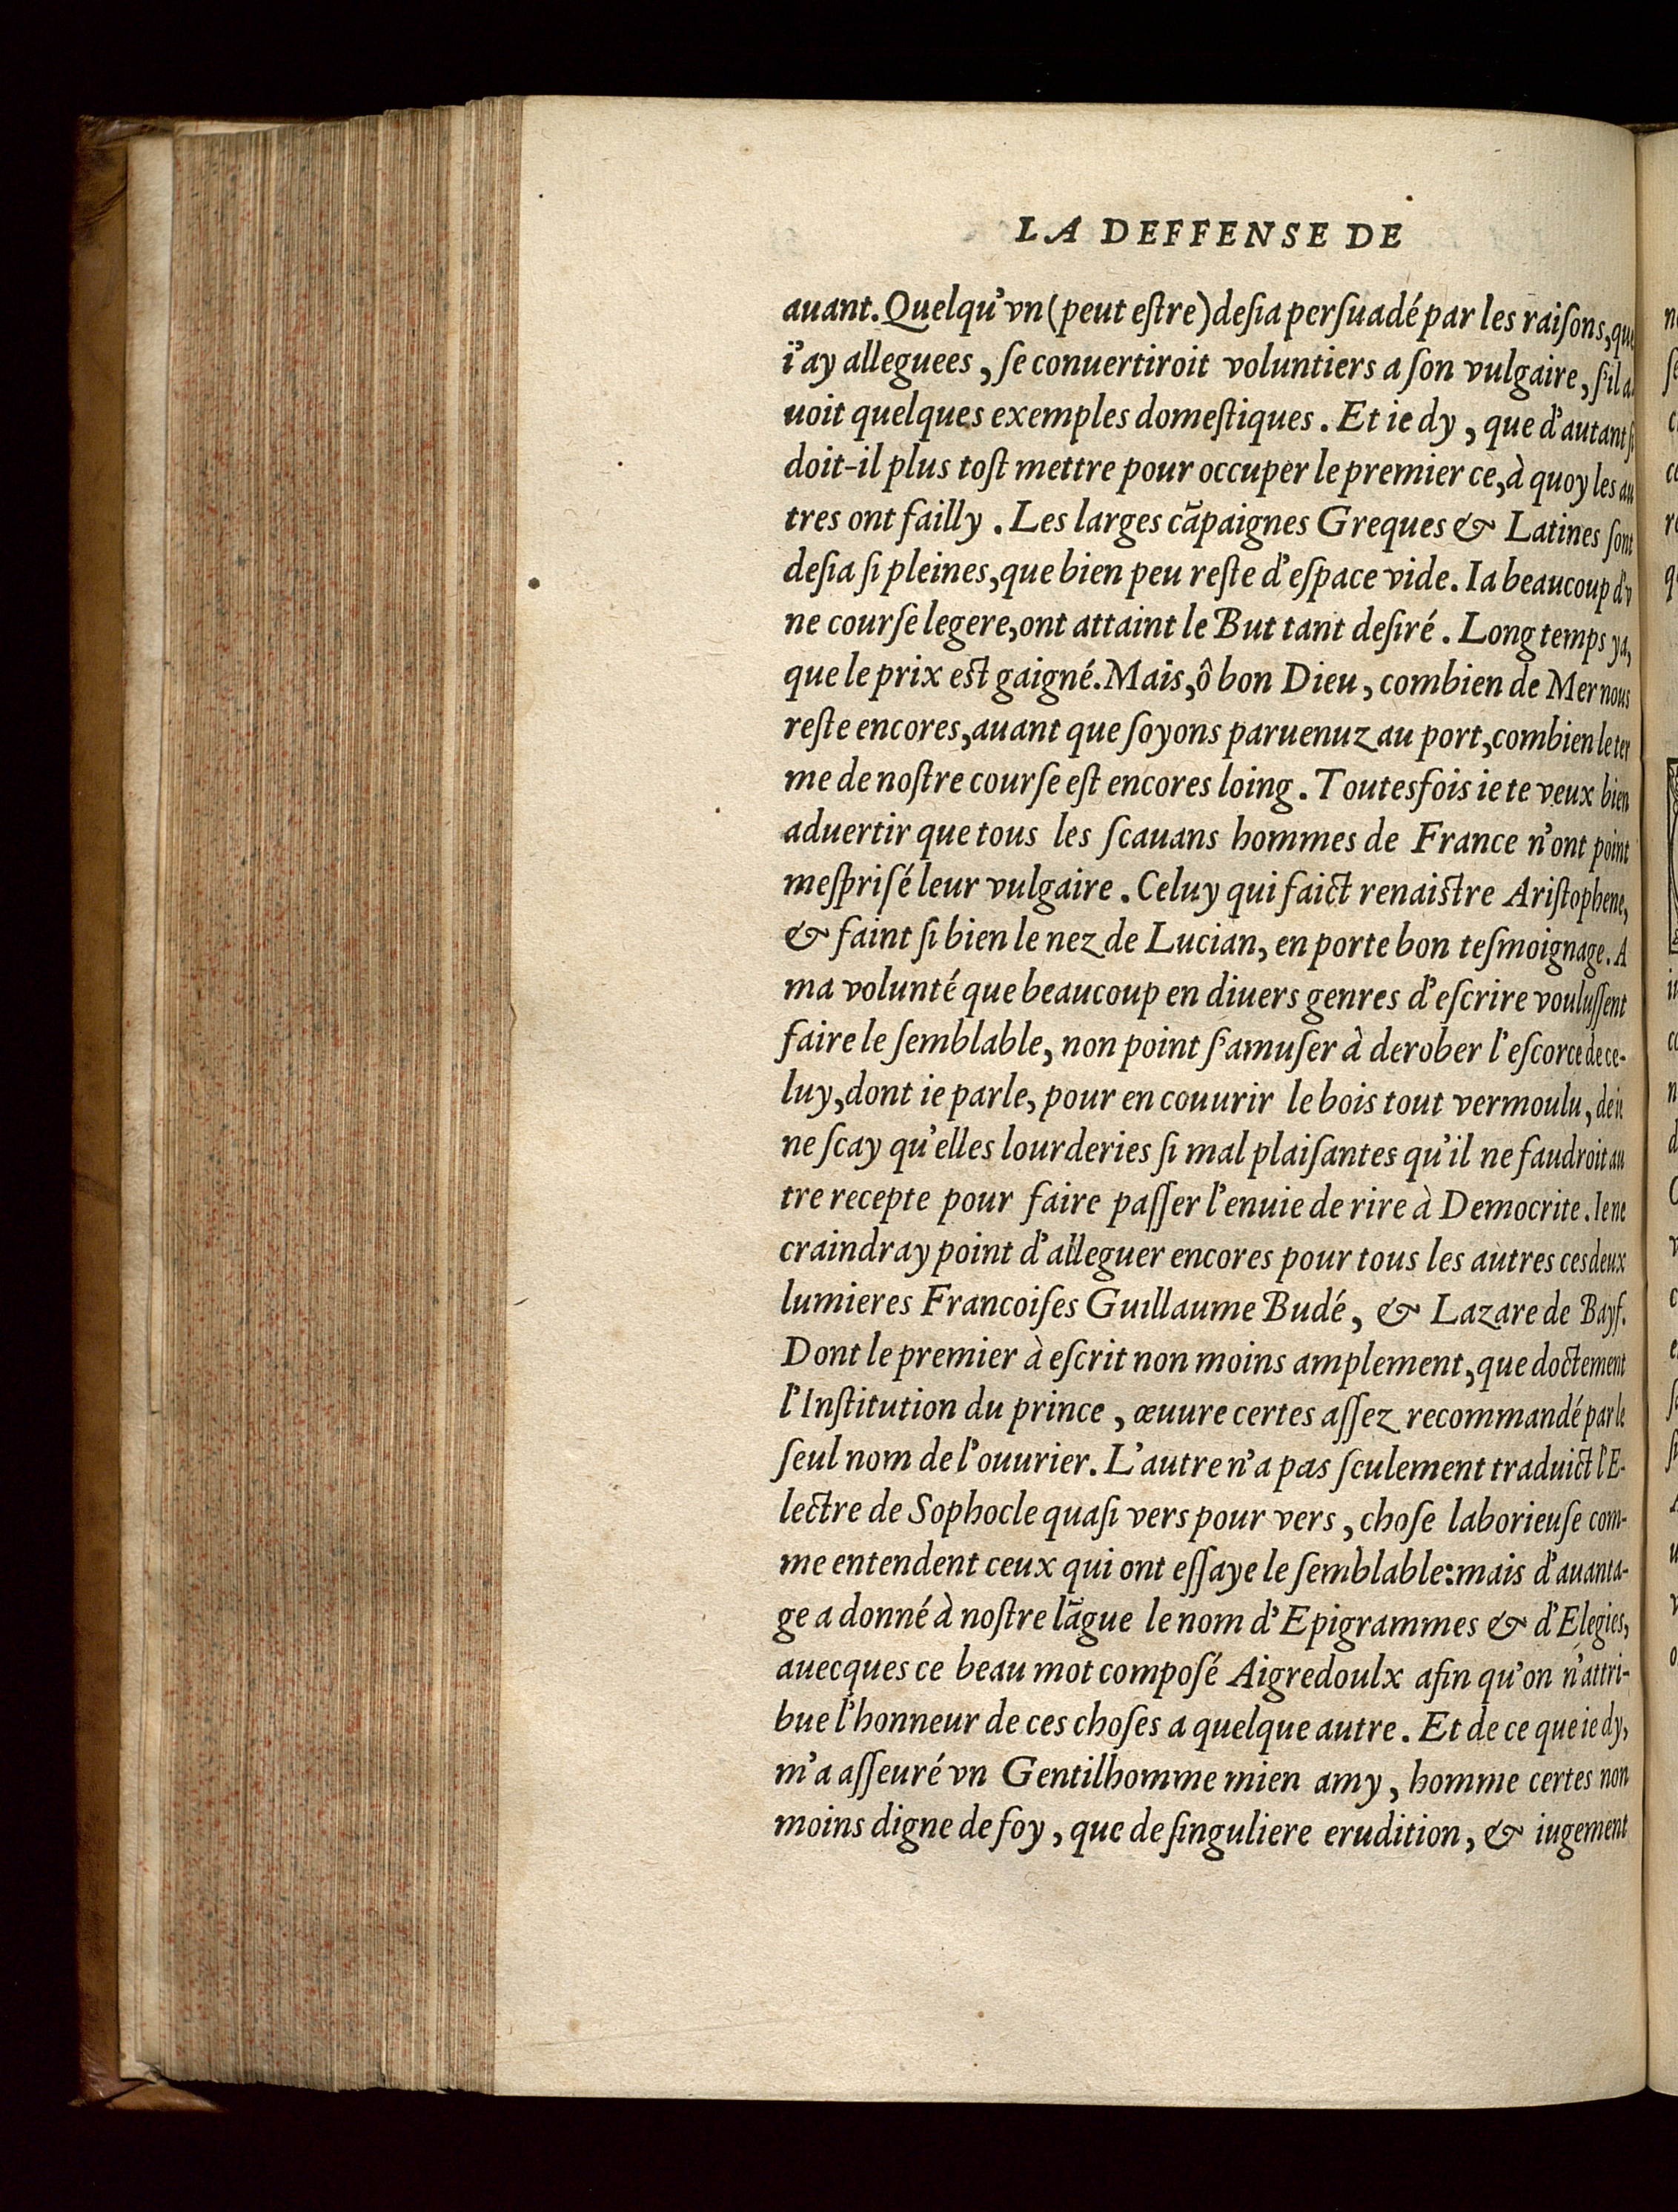 LA DEFFENSE DE
auant. Quelqu'vn (peut eſtre) deſia perſuadé par les raiſons, que
i'ay alleguees, ſe conuertiroit voluntiers a ſon vulgaire, ſ'il a
uoit quelques exemples domeſtiques. Et ie dy, que d'autant ſ
doit-il plus toſt mettre pour occuper le premier ce, à quoy les au
tres ont failly. Les larges cāpaignes Greques & Latines ſont
deſia ſi pleines, que bien peu reſte d'eſpace vide. Ia beaucoup d'v
ne courſe legere, ont attaint le But tant deſiré. Long temps ya,
que le prix eſt gaigné. Mais, ô bon Dieu, combien de Mer nous
reſte encores, auant que ſoyons paruenuz au port, combien le ter
me de noſtre courſe eſt encores loing. Toutesfois ie te veux bien
aduertir que tous les ſcauans hommes de France n'ont point
meſpriſé leur vulgaire. Celuy qui faict renaiſtre Ariſtophene,
& faint ſi bien le nez de Lucian, en porte bon teſmoignage. A
ma volunté que beaucoup en diuers genres d'eſcrire vouluſſent
faire le ſemblable, non point ſ'amuſer à derober l'eſcorce de ce-
luy, dont ie parle, pour en couurir le bois tout vermoulu, de ie
ne ſcay qu'elles lourderies ſi mal plaiſantes qu'il ne faudroit au
tre recepte pour faire paſſer l'enuie de rire à Democrite. Ie ne
craindray point d'alleguer encores pour tous les autres ces deux
lumieres Francoiſes Guillaume Budé, & Lazare de Bayf.
Dont le premier à eſcrit non moins amplement, que doctement
l'Inſtitution du prince, œuure certes aſſez recommandé par le
ſeul nom de l'ouurier. L'autre n'a pas ſculement traduict l'E-
lectre de Sophocle quaſi vers pour vers, choſe laborieuſe com-
me entendent ceux qui ont eſſaye le ſemblable: mais d'auanta-
ge a donné à noſtre lāgue le nom d'Epigrammes & d'Elegies,
auecques ce beau mot compoſé Aigredoulx afin qu'on n'attri-
bue l'honneur de ces choſes a quelque autre. Et de ce que ie dy,
m'a aſſeuré vn Gentilhomme mien amy, homme certes non
moins digne de foy, que de ſinguliere erudition, & iugement